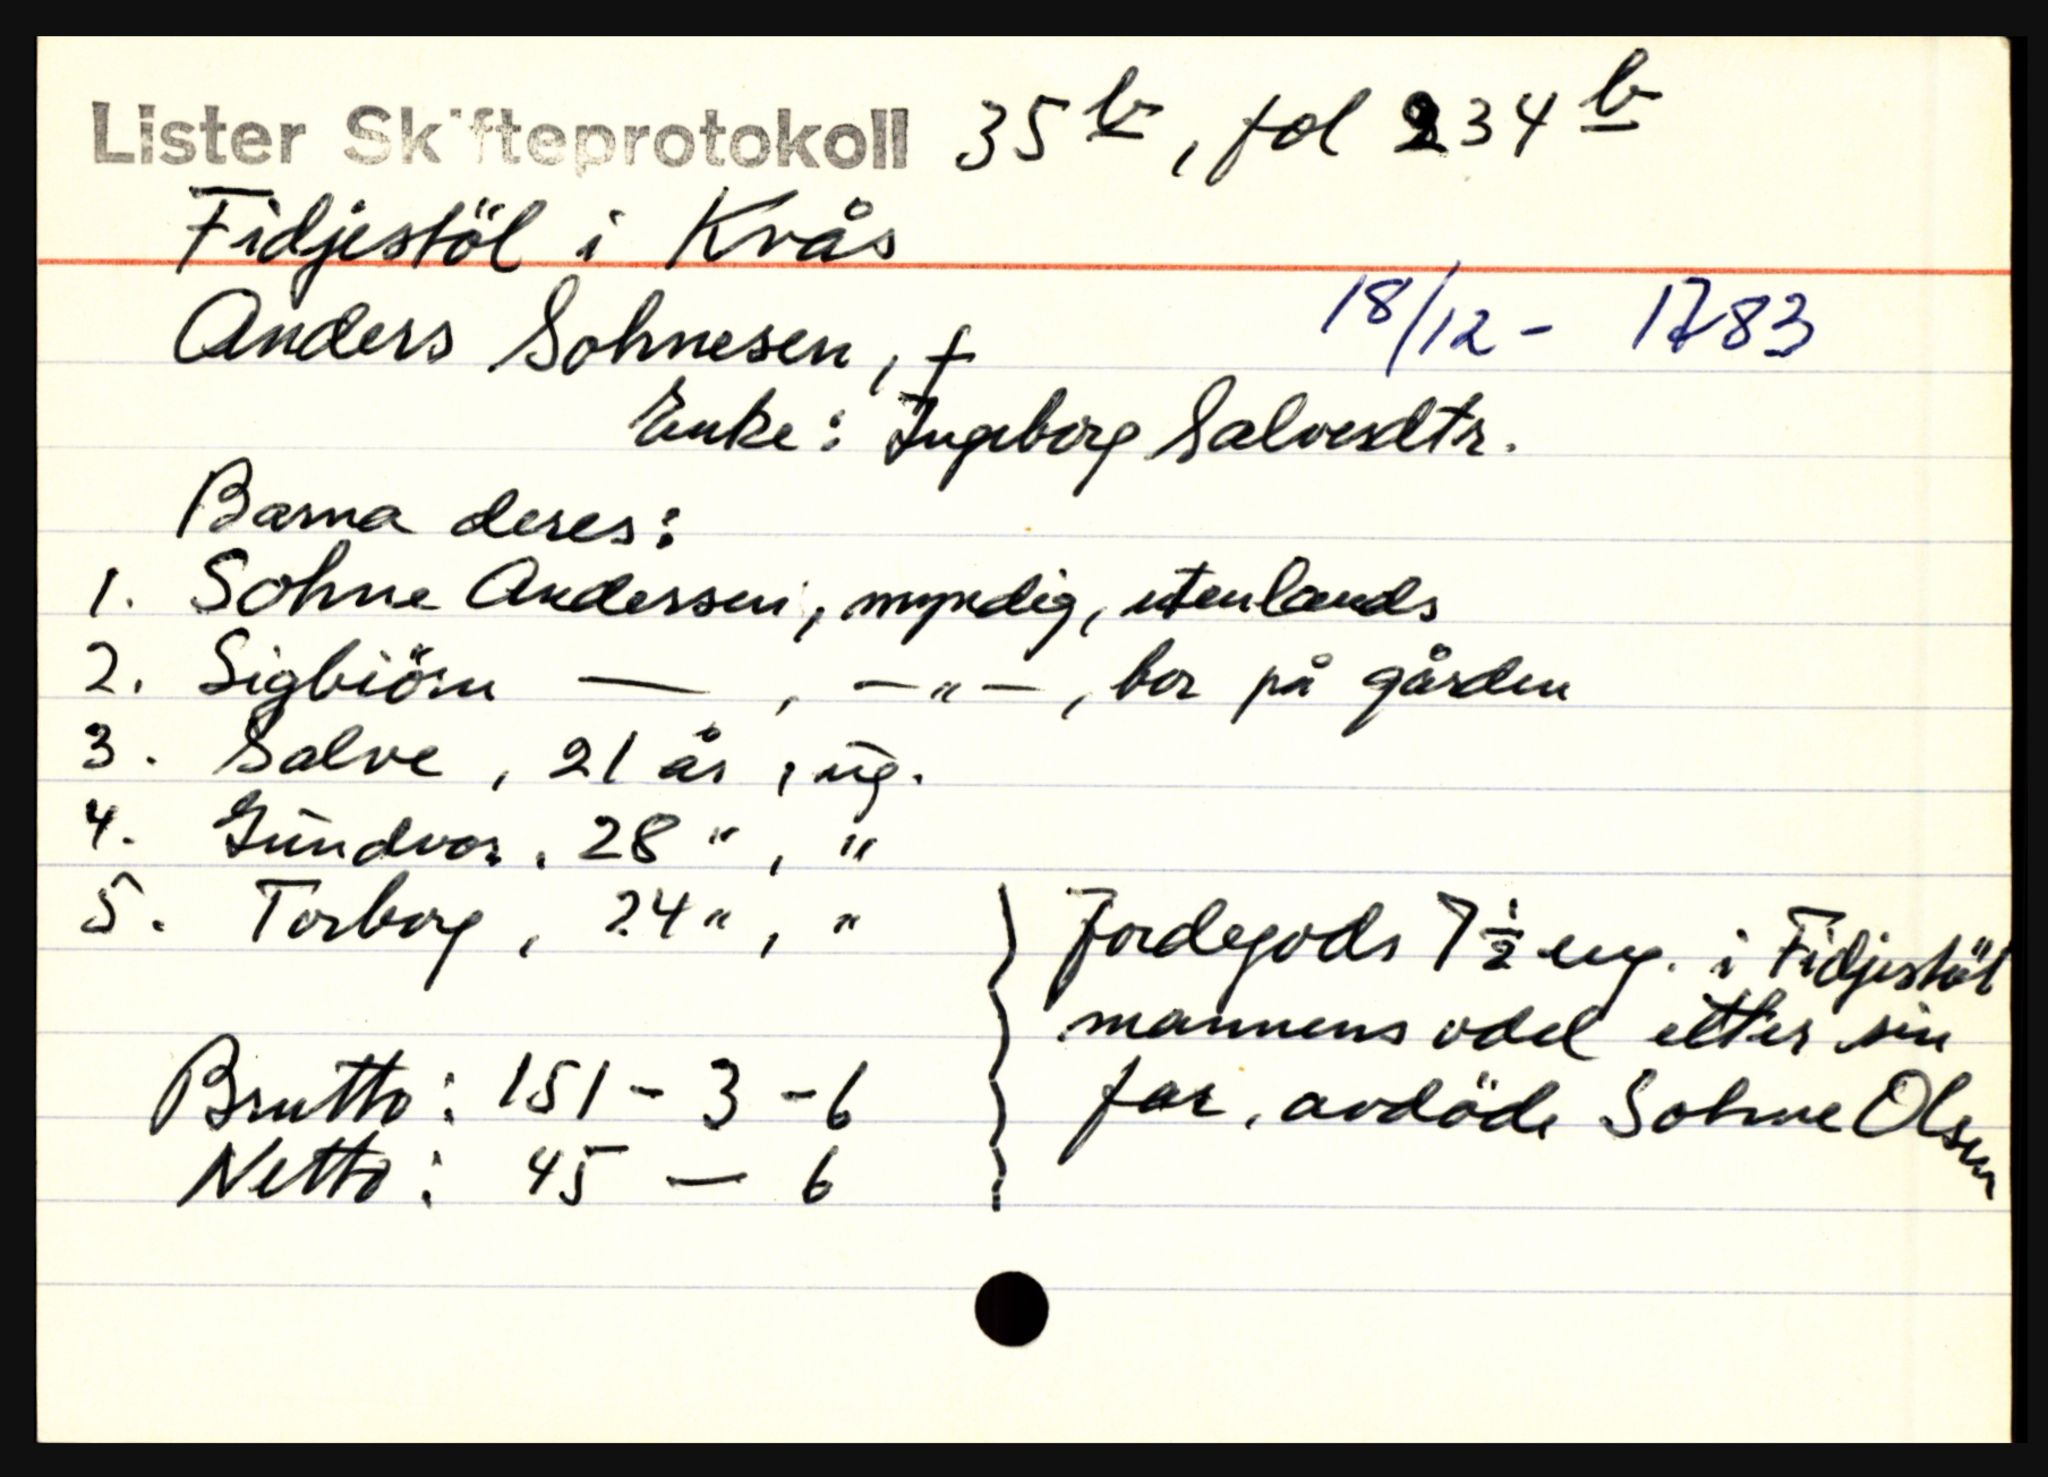 Lister Skifteprotokoll 35 b, fol 234 b
Fidjestöl i Kvås
Anders Sohnesen, † 18/12 - 1783
Enke: Ingeborg Salvesdtr.
Barna deres:
1. Sohne Anderssen, myndig, utenlands
2. Sigbiörn —, —"—, bor på gården
3. Salve, 21 år, ug.
4. Gundvor, 28 ", "
5. Torborg, 24 ", "
Jordegods 7 ½ eng. i Fidjestöl
mannens odel etter sin
far, avdöde Sohne Olsen
Brutto: 151 - 3 - 6
Netto: 45 — 6